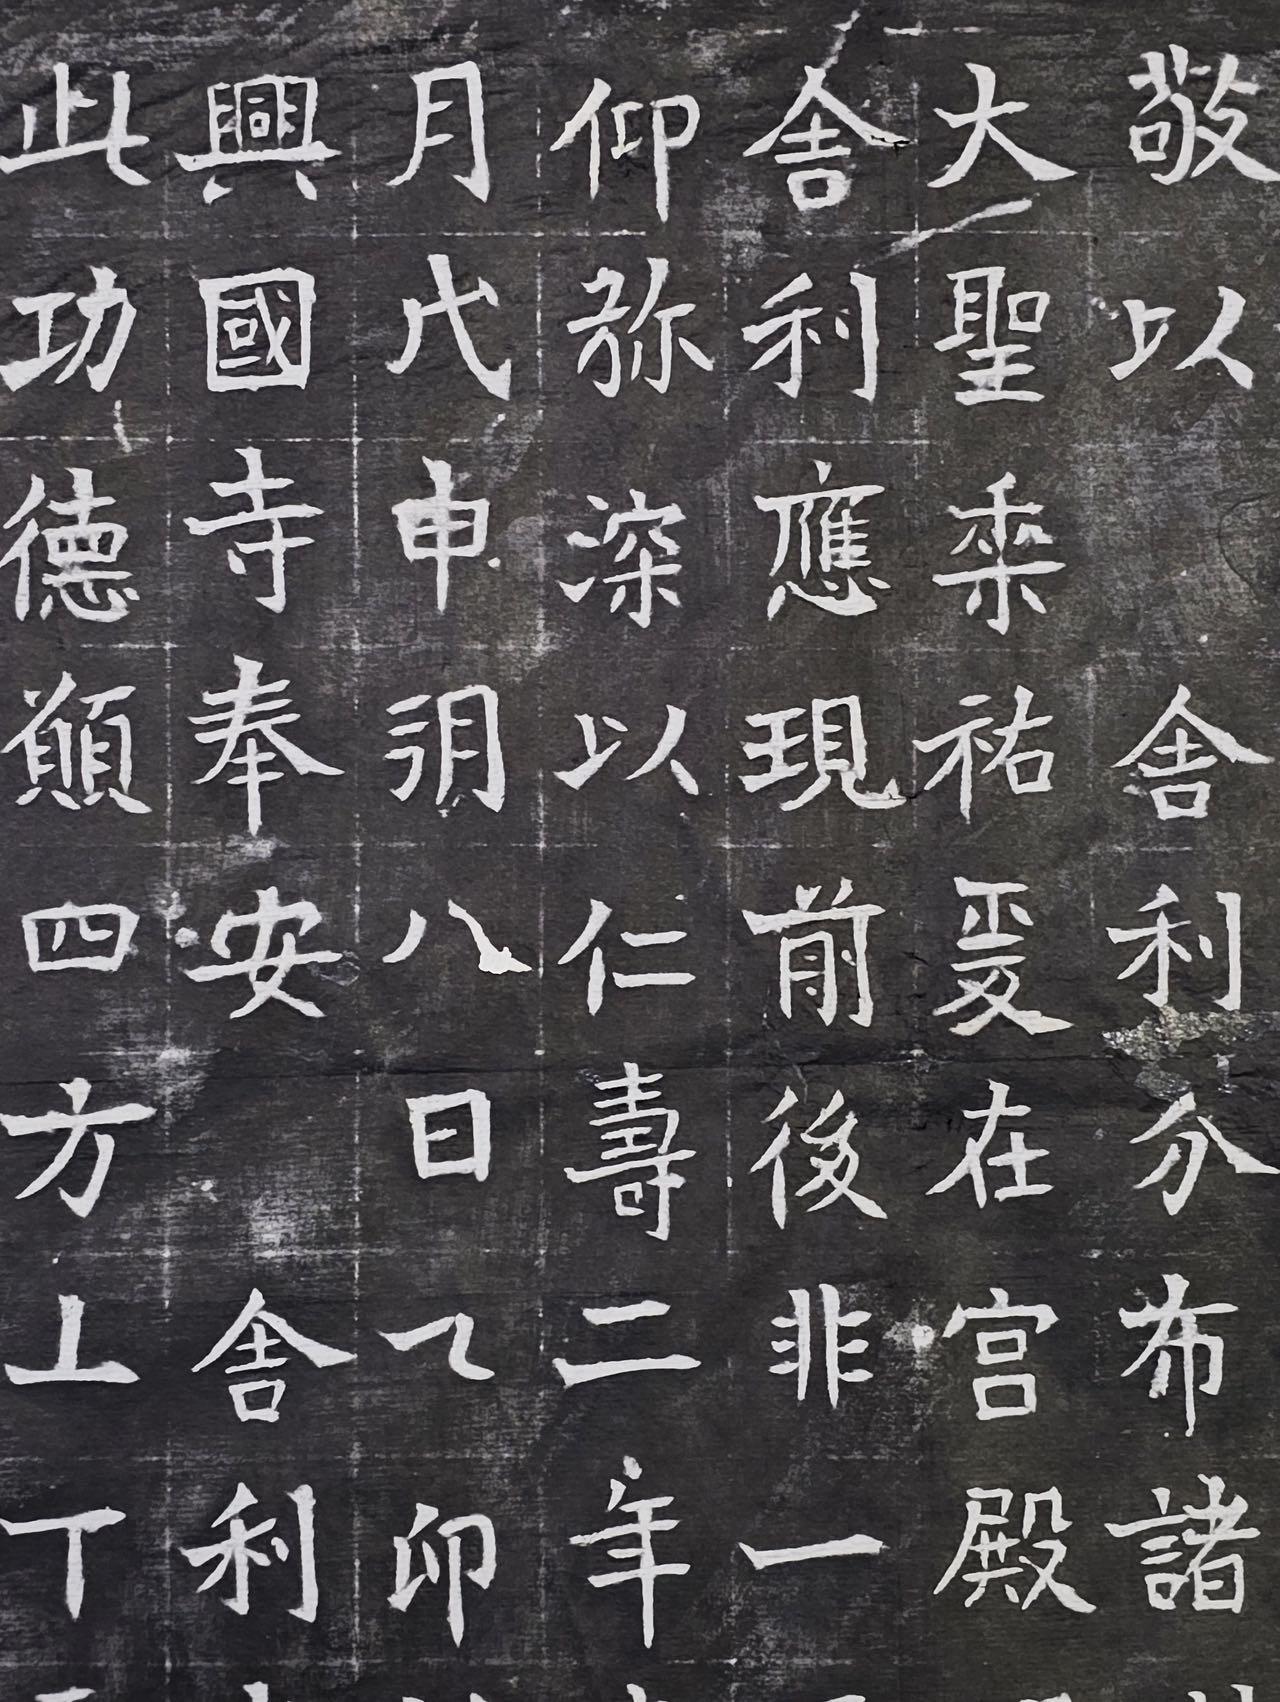 敬以　舍利分布諸
大聖乘祐爰在宮殿
舍利應現前後非一
仰弥深以仁壽二年
月戊申朔八日乙卯
興國寺奉安　舍利
此功德願四方上下